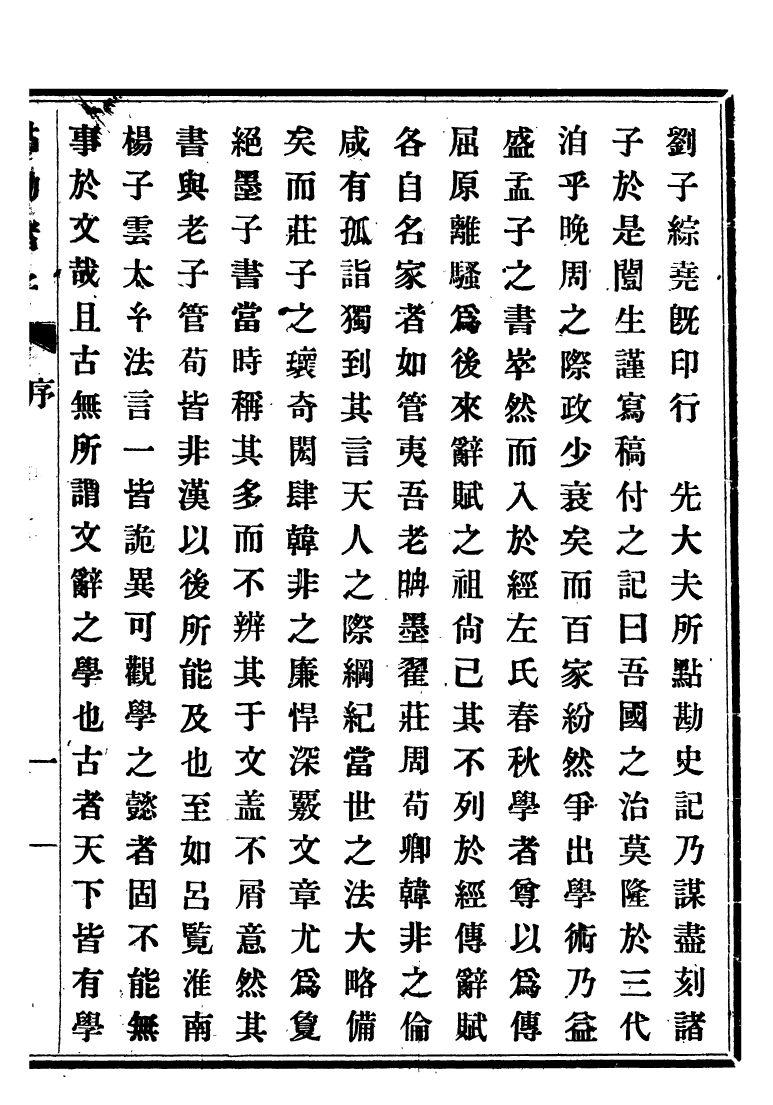 劉子綜堯旣印行　先大夫所點勘史記乃謀盡刻諸
子於是闓生謹寫稿付之記曰吾國之治莫隆於三代
洎乎晚周之際政少衰矣而百家紛然爭出學術乃益
盛孟子之書崒然而入於經左氏春秋學者尊以爲傳
屈原離騷爲後來辭賦之祖尙已其不列於經傳辭賦
各自名家者如管夷吾老聃墨翟莊周荀卿韓非之倫
咸有孤詣獨到其言天人之際綱紀當世之法大略備
矣而莊子之瓌奇閎肆韓非之廉悍深覈文章尤爲敻
絕墨子書當時稱其多而不辨其于文盖不屑意然其
書與老子管荀皆非漢以後所能及也至如呂覽淮南
楊子雲太𤣥法言一皆詭異可觀學之懿者固不能無
事於文哉且古無所謂文辭之學也古者天下皆有學
序
一